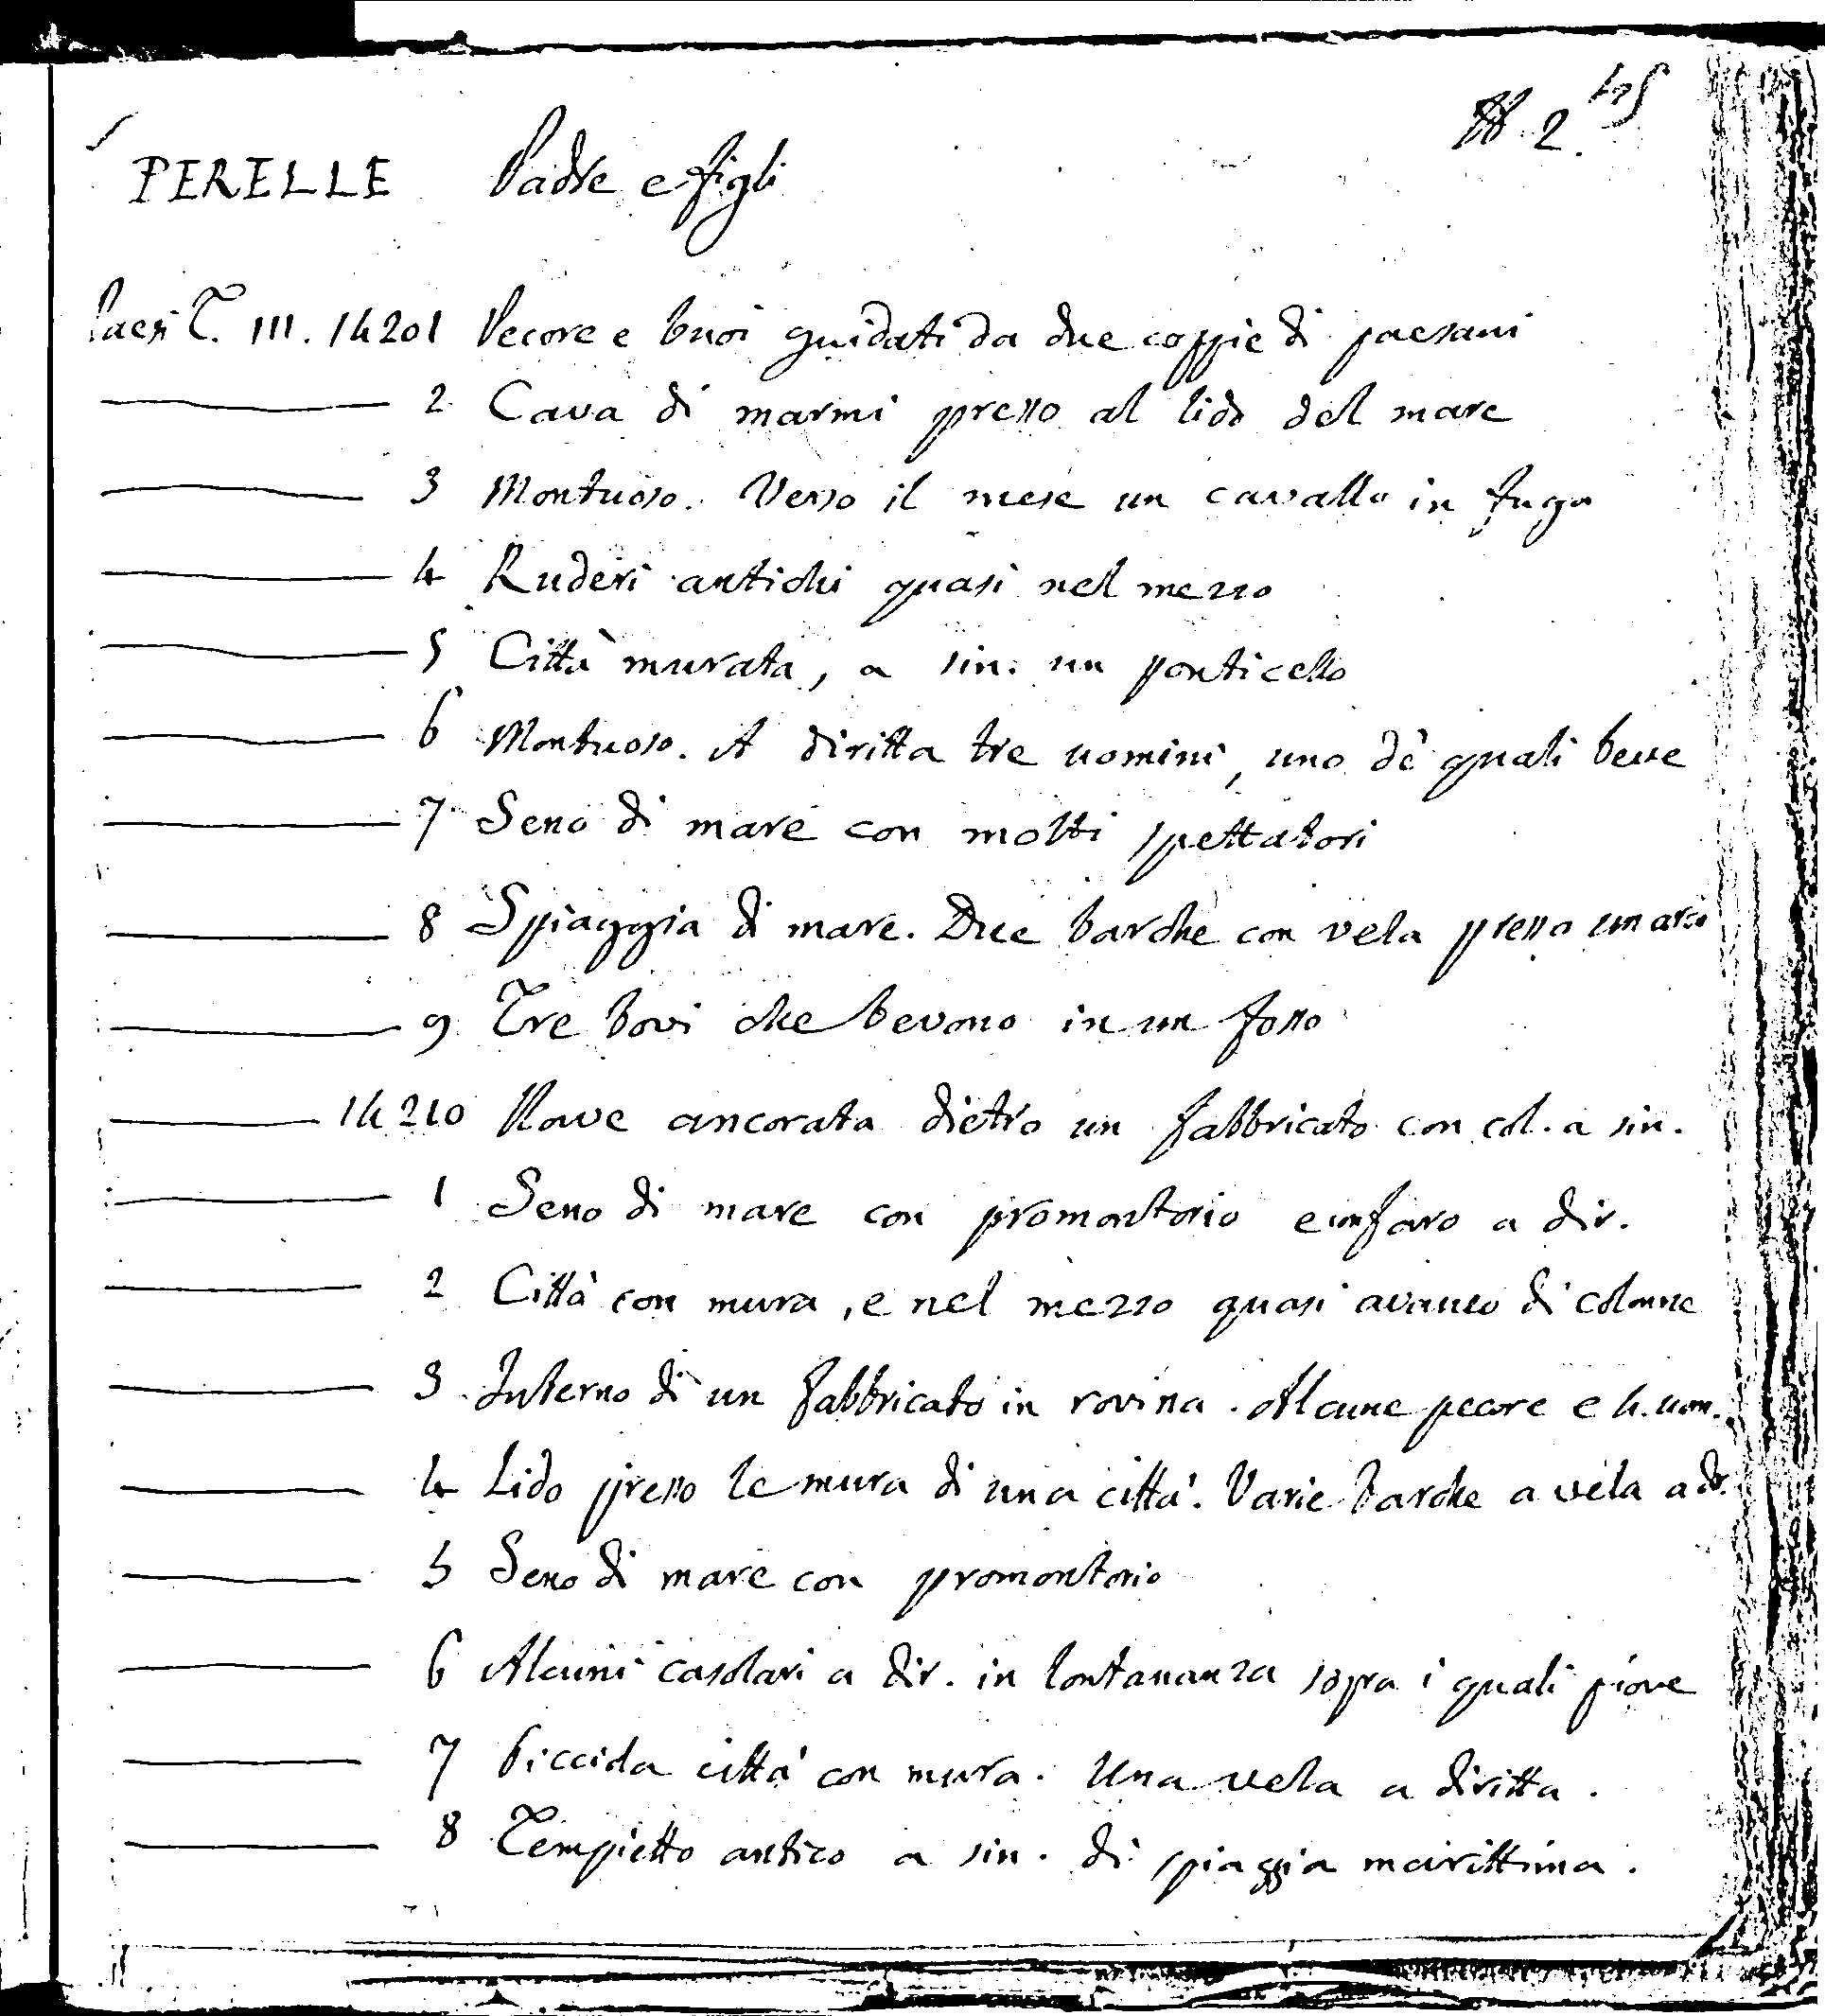 2. bis
PERELLE Padre e figli
Paesi T. III. 14201 Pecore e buoi guidati da due coppie di paesani
2 Cava di marmi presso al lido del mare
3 Montuoso. Verso il mese un cavallo in fuga
4 Ruderi antichi quasi nel mezzo
5 Città murata, a sin. un ponticello
6 Montuoso. A diritta tre uomini, uno de' quali beve
7 Seno di mare con molti spettatori
8 Spiaggia di mare. Due barche con vela presso un arco
9 Tre bovi che bevono in un fosso
14210 Nave ancorata dietro un fabbricato con col. a sin.
1 Seno di mare con promontorio e un faro a dir.
2 Città con mura, e nel mezzo quasi avanzo di colonne
3 Interno di un fabbricato in rovina. Alcune pecore e 4. uom.
4 Lido presso le mura di una città. Varie barche a vela a dr.
5 Seno di mare con promontorio
6 Alcuni casolari a dir. in lontananza sopra i quali piove
7 Piccola città con mura. Una vela a diritta.
8 Tempietto antico a sin. di spiaggia marittima.